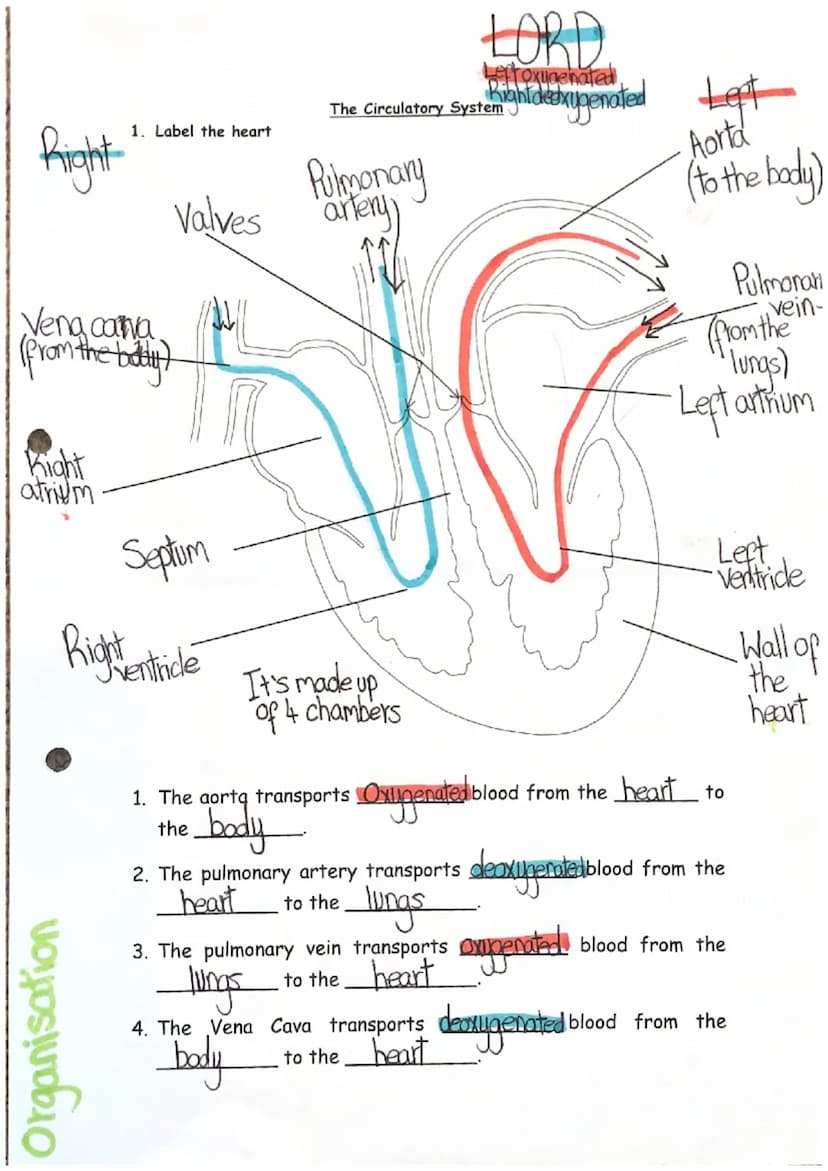 LORD
Left oxygenated
Right deoxygenated
The Circulatory System
Left
Right
1. Label the heart
Aorta
(to the body)
Pulmonary
artery
Valves
Pulmonary
vein
(from the
lungs)
Vena cava
(from the body)
Left artrium
Right
atrium
Septum
Left
ventricle
Right
ventricle
Wall of
the
heart
It's made up
of 4 chambers
1. The aorta transports Oxygenated blood from the heart to
the body.
2. The pulmonary artery transports deoxygenated blood from the
heart to the lungs.
3. The pulmonary vein transports oxygenated blood from the
lungs to the heart.
4. The Vena Cava transports deoxygenated blood from the
body to the heart.
Organisation